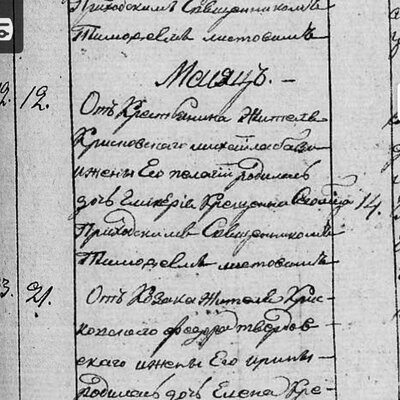 Приходскимъ Священникомъ
Тимофѣемъ Листовымъ
Маяцъ. —
2. 12. Отъ Крестьянина Жителя
Крисковскаго Михаила
и жены Его Пелагiи родилась
дочь Гликерiя Крещенна 14.
Приходскимъ Священникомъ
Тимофѣемъ Листовымъ
3. 21. Отъ Козака Жителя Крис-
ковскаго Федора Твердов-
скаго и жены Его Ирины
родилась дочь Елена Кре-